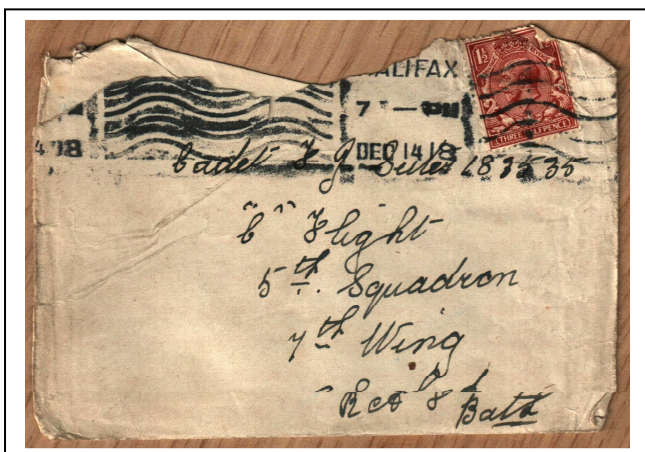 HALIFAX
7 PM
DEC 14 18
1½
THREE HALFPENCE
Cadet F G 183535
"C" Flight
5th. Squadron
7th Wing
Batt